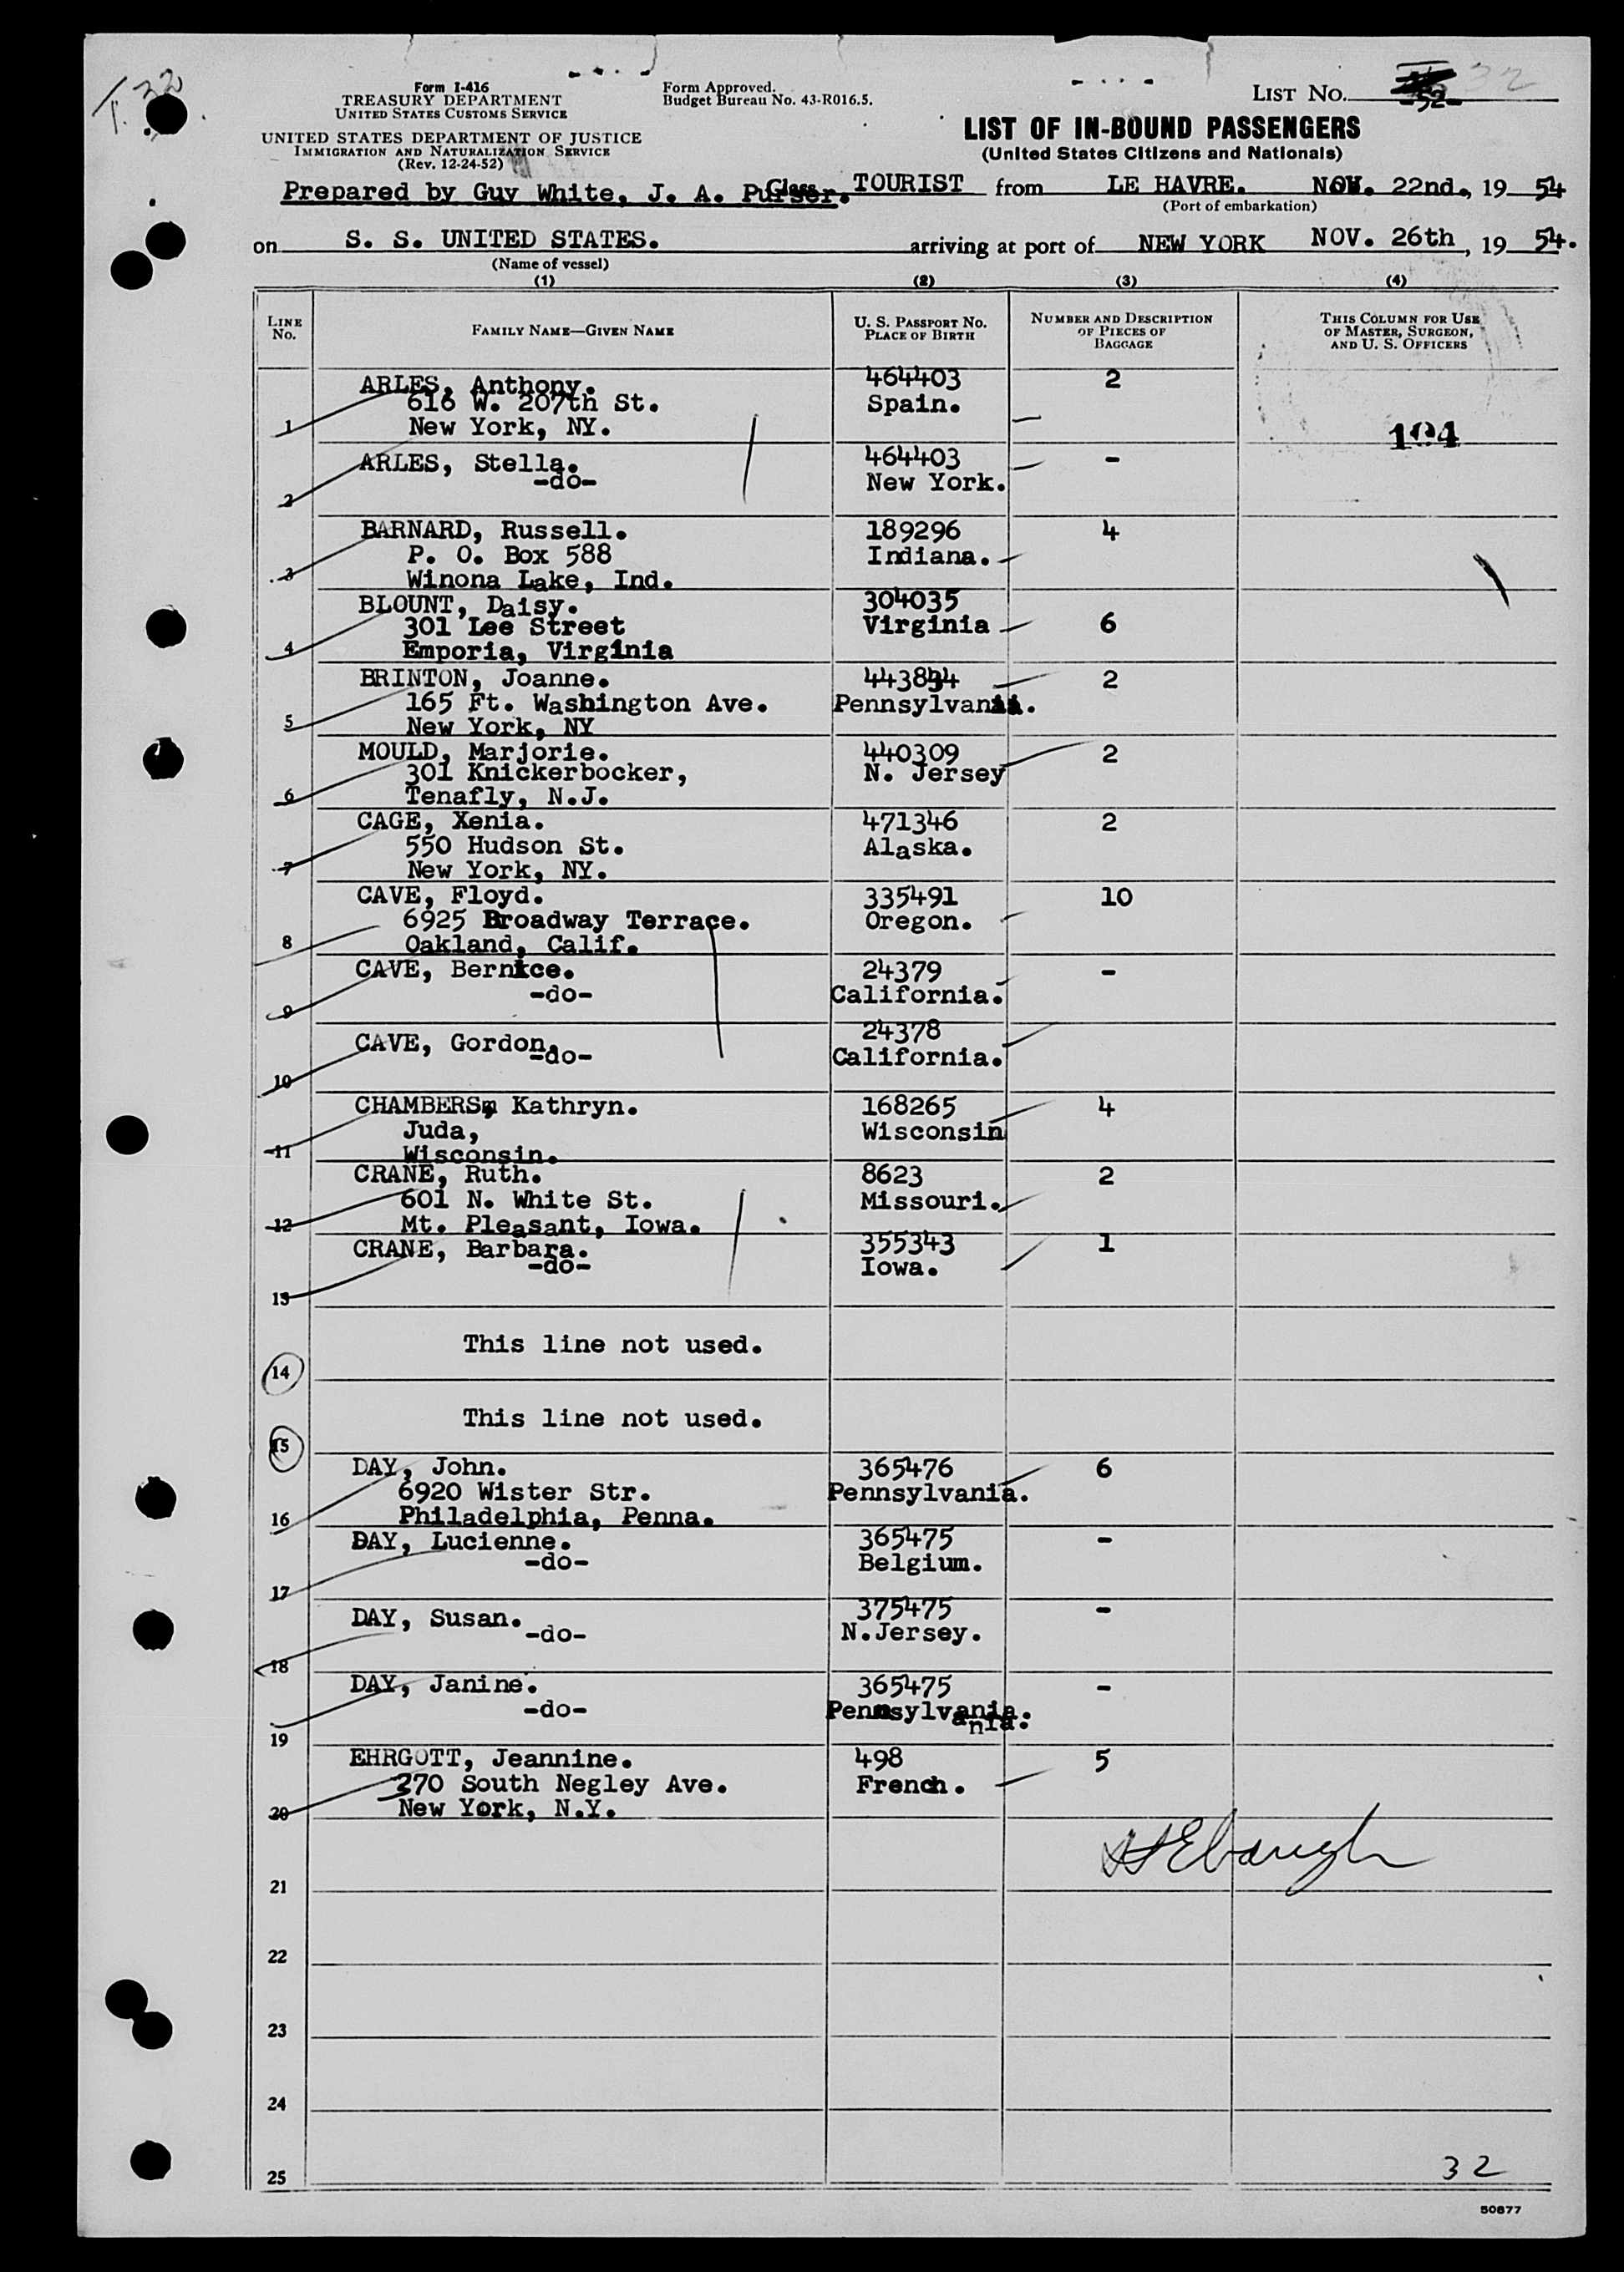 T. 32
Form I-416
TREASURY DEPARTMENT
UNITED STATES CUSTOMS SERVICE
UNITED STATES DEPARTMENT OF JUSTICE
IMMIGRATION AND NATURALIZATION SERVICE
(Rev. 12-24-52)
Form Approved.
Budget Bureau No. 43-R016.5.
LIST NO. 32
-32-
LIST OF IN-BOUND PASSENGERS
(United States Citizens and Nationals)
Prepared by Guy White, J. A. Purser. Class TOURIST from LE HAVRE. NOV. 22nd., 19 54
(Port of embarkation)
on S. S. UNITED STATES. arriving at port of NEW YORK NOV. 26th, 19 54.
(Name of vessel)
(1) (2) (3) (4)
LINE No. FAMILY NAME—GIVEN NAME U. S. PASSPORT NO. PLACE OF BIRTH NUMBER AND DESCRIPTION OF PIECES OF BAGGAGE THIS COLUMN FOR USE OF MASTER, SURGEON, AND U. S. OFFICERS
ARLES, Anthony. 464403 2
616 W. 207th St. Spain.
1 New York, NY. 194
ARLES, Stella. 464403 -
-do- New York.
2
BARNARD, Russell. 189296 4
P. O. Box 588 Indiana.
3 Winona Lake, Ind.
BLOUNT, Daisy. 304035
301 Lee Street Virginia 6
4 Emporia, Virginia
BRINTON, Joanne. 2
165 Ft. Washington Ave. Pennsylvania.
5 New York, NY
MOULD, Marjorie. 440309 2
301 Knickerbocker, N. Jersey
6 Tenafly, N.J.
CAGE, Xenia. 471346 2
550 Hudson St. Alaska.
7 New York, NY.
CAVE, Floyd. 335491 10
6925 Broadway Terrace. Oregon.
8 Oakland, Calif.
CAVE, Bernice. 24379 -
-do- California.
9
24378
CAVE, Gordon. California.
-do-
10
CHAMBERS, Kathryn. 168265 4
Juda, Wisconsin
11 Wisconsin.
CRANE, Ruth. 8623 2
601 N. White St. Missouri.
12 Mt. Pleasant, Iowa.
CRANE, Barbara. 355343 1
-do- Iowa.
13
This line not used.
14
This line not used.
15
DAY, John. 365476 6
6920 Wister Str. Pennsylvania.
16 Philadelphia, Penna.
DAY, Lucienne. 365475 -
-do- Belgium.
17
DAY, Susan. 375475 -
-do- N.Jersey.
18
DAY, Janine. 365475 -
-do- Pennsylvania.
ania.
19
EHRGOTT, Jeannine. 498 5
270 South Negley Ave. French.
20 New York, N.Y.
21
22
23
24
25
32
50877